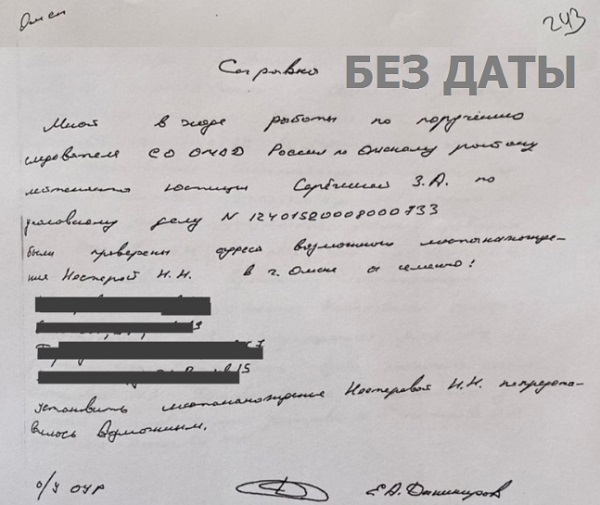 Омск
243
Справка
БЕЗ ДАТЫ
Мной в ходе работы по поручению
следователя СО ОМВД России по Омскому району
лейтенанта юстиции З.А. по
уголовному делу N 12401520008000733
были проверены адреса возможного местонахожде-
ния Нестеровой Н.Н. в г. Омске а именно:
7
15
установить местонахождение Нестеровой Н.Н. не предста-
вилось возможным.
о/у ОУР Е.А.